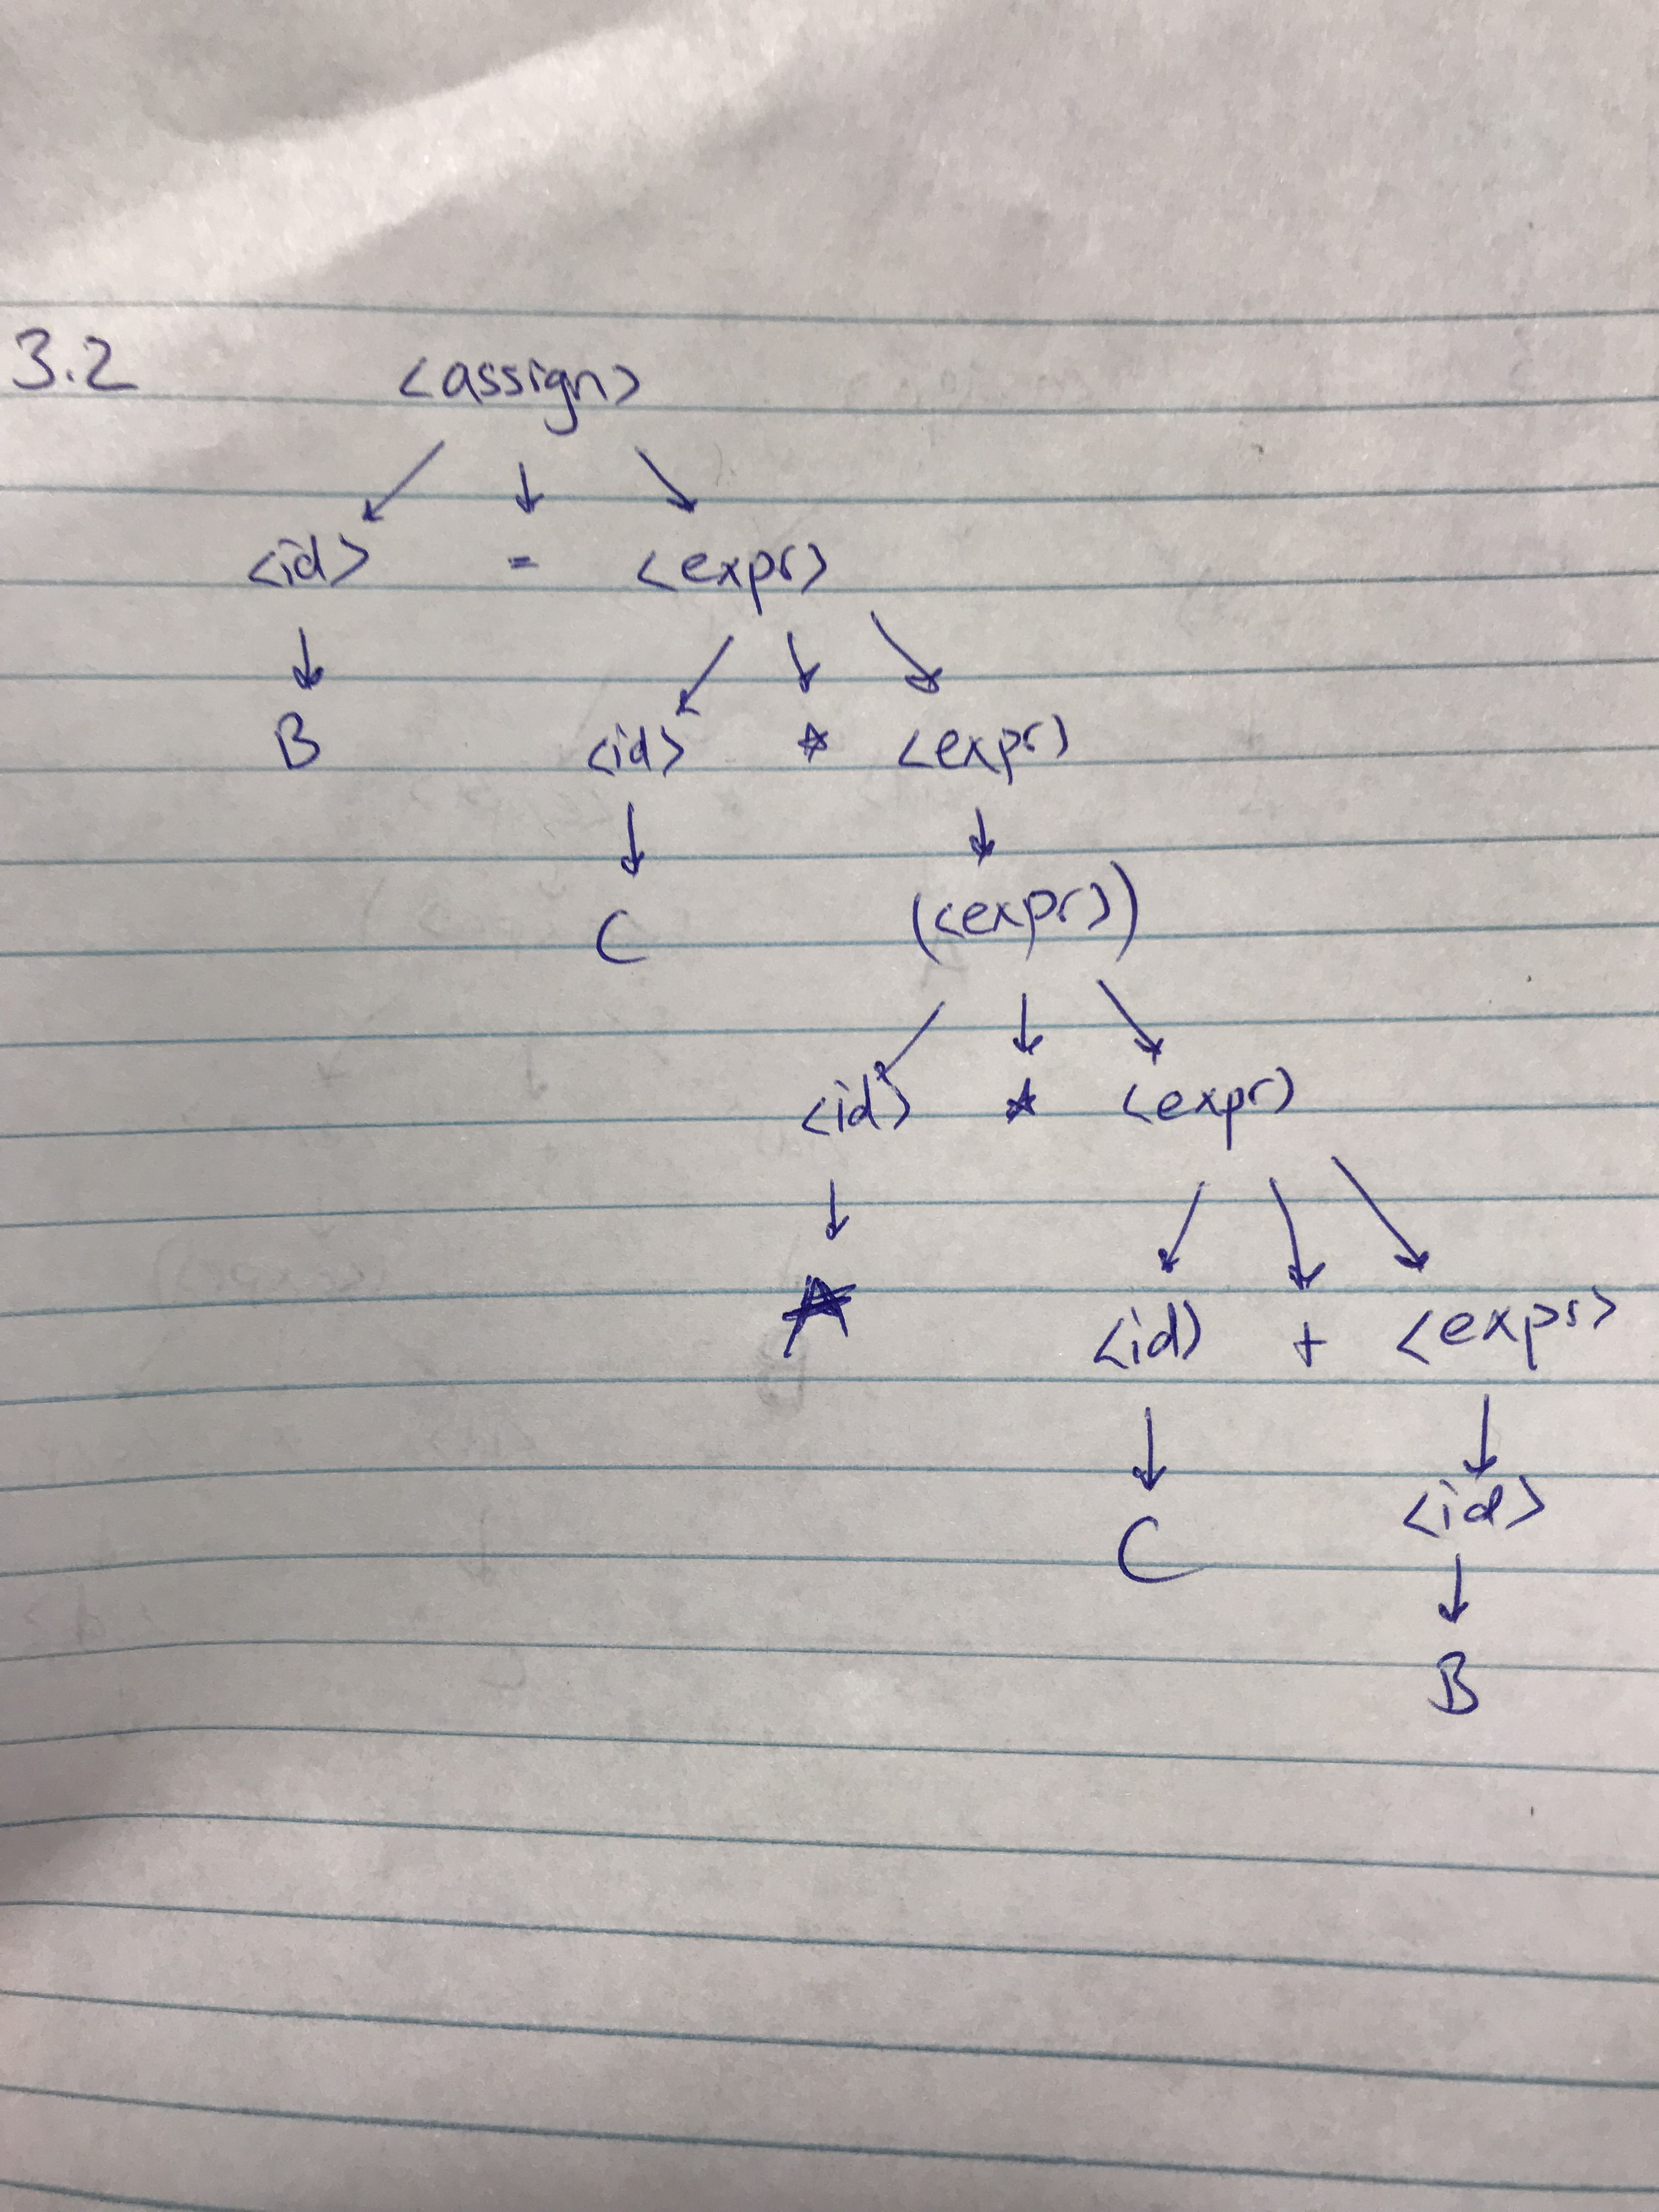 3.2 <assign>
<id> = <expr>
B <id> * <expr>
C (<expr>)
<id> * <expr>
A <id> + <expr>
C <id>
B